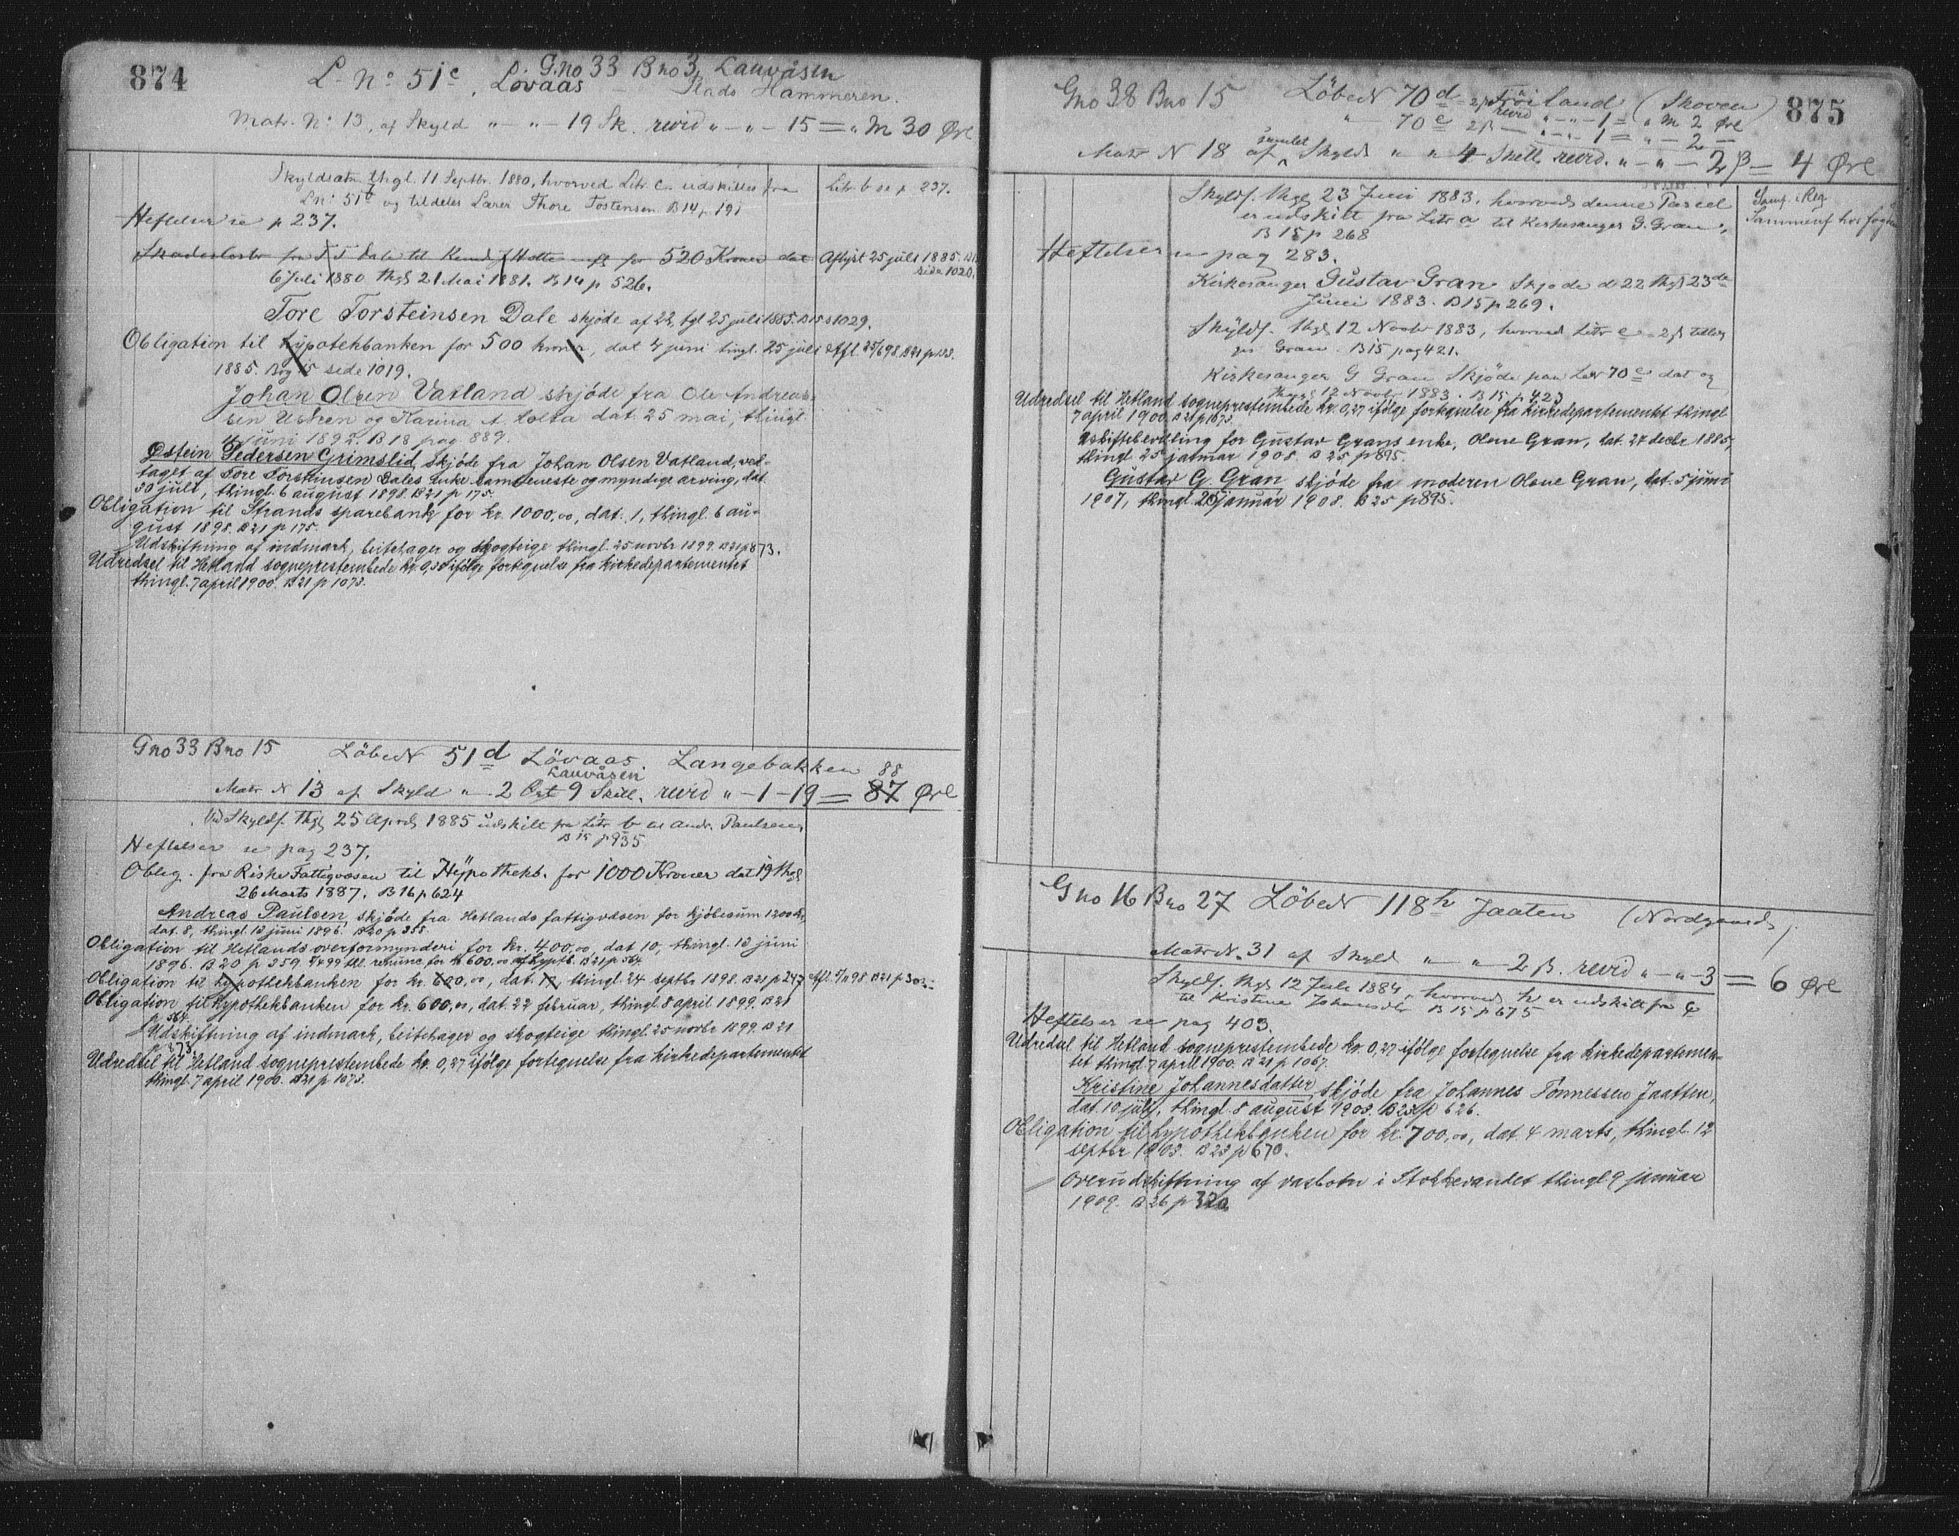 874
G.no 33 Bno 3, Lauvåsen
L. No 51c, Lövaas – Hammeren.
Matr. No 13, af Skyld " – " – 19 Sk. revid " – " – 15 = " M 30 Øre
Skyldsætn. thgl. 11 Septbr. 1880, hvorved Litr c. udskilles fra
LNo 51b og tildeles Lærer Thore Tostensen B14 p 191
Litr b se p 237.
Heftelser se p 237.
Skadesløsbr fra T T Dale til 520 Kroner dat
6 Juli 1880 thgl 21 Mai 1881. B14 p 526.
Aflyst 25 juli 1885. B15
side 1020.
Tore Torsteinsen Dale skjøde af 22, tgl 25 juli 1885. B15 s 1029.
Obligation til hypotekbanken for 500 kroner, dat 4 juni tingl. 25 juli
1885. Bog 15 side 1019.
Afl. 25/6 98. B21 p 133.
Johan Olsen Vatland skjöde fra Ole Andreas-
sen og Karina A. dat. 25 mai, thingl.
4 juni 1892. B18 pag 889.
Østein Pedersen Grimslid, skjøde fra Johan Olsen Vatland, ved-
taget af Tore Torsteinsen Dales enke Samt eneste og myndige arving, dat.
30 juli, thingl. 6 august 1898. B21 p 175.
Obligation til Strands sparebank for kr. 1000,00, dat. 1, thingl. 6 au-
gust 1898. B21 p 175.
Udskiftning af indmark, beitehager og skogteige thingl. 25 novbr 1899. B21 p 873.
Udredsel til Hetland sogneprestembede kr. 0,30 ifölge fortegnelse fra kirkedepartementet
thingl. 7 april 1900. B21 p 1073.
Gno 33 Bno 15 LöbeN 51d Lövaas. Langebakken
Lauvåsen 88
Matr N 13 af Skyld " – 2 Ort 9 Skill. revid " – 1 – 19 = 87 Øre
Ved Skyldf. Thgl 25 April 1885 udskilt fra Litr b til Andr. Paulsen
B15 p 935
Heftelser se pag 237.
Oblig. fra Riske Fattigvæsen til Hypothekb. for 1000 Kroner dat 19 thgl
26 Marts 1887. B16 p 624
Andreas Paulsen, skjøde fra Hetlands fattigvæsen for kjöbesum 1200 kr,
dat. 8, thingl. 13 juni 1896. B20 p 358.
Obligation til Hetlands overformynderi for kr. 400,00, dat 10, thingl. 13 juni
1896. B20 p 359. 8/4 99 till. for kr 600,00 af hypotb. B21 p 564
Obligation til hypothekbanken for kr. 600,00, dat. 12, thingl. 24 septbr 1898. B21 p 243
Obligation til hypothekbanken for kr. 600,00, dat. 22 februar, thingl. 8 april 1899. B21
p 564.
Udskiftning af indmark, beitehager og skogteige thingl. 25 novbr 1899. B21
p 873.
Udredsel til Hetland sogneprestembede kr. 0,27 ifölge fortegnelse fra kirkedepartementet
thingl. 7 april 1900. B21 p 1073.
875
Gno 38 Bno 15 LöbeN 70d – 2β Tröiland (Skoven)
revid " – " – 1 = " M 2 Øre
" 70e 2β – " – " – 1 = " – 2 –
Matr N 18 af samlet Skyld " " 4 Skill. revid. " – " – 2β = 4 Øre
Skyldf. thgl 23 Juni 1883, hvorved denne Parcel
er udskilt fra Litr a til Kirkesanger G. Gran.
B15 p 268
Heftelser se pag 283.
Kirkesanger Gustav Gran Skjøde d 22 thgl 23de
Juni 1883. B15 p 269.
Skyldf. thgl 12 Novbr 1883, hvorved Litr e – 2β tillæg-
ges Gran. B15 pag 421.
Kirkesanger G Gran Skjöde paa LN 70e dat og
thgl 12 Novbr 1883. B15 p 423
Udredsel til Hetland sogneprestembede kr. 0,27 ifölge fortegnelse fra kirkedepartementet thingl
7 april 1900. B21 p 1073.
Uskiftebevilling for Gustav Grans enke, Olene Gran, dat. 24 decbr 1885,
thingl 25 januar 1908. B25 p 895.
Gustav G. Gran skjöde fra moderen Olene Gran, dat. 5 juni
1907, thingl. 25 januar 1908. B25 p 895.
Gno 16 Bno 27 LöbeN 118h Jaaten (Nordgaard)
Matr N. 31 af Skyld " – " – 2β. revid " – " – 3 = 6 Øre
Skyldf. thgl 12 Juli 1884, hvorved h er udskilt fra c
til Kristine Johansdtr B15 p 675
Heftelser se pag 403.
Udredsel til Hetland sogneprestembede kr 0,27 ifölge fortegnelse fra kirkedepartemen-
tet thingl 7 april 1900. B21 p 1067.
Kristine Johannesdatter, skjöde fra Johannes Tönnessen Jaatten,
dat. 10 juli, thingl. 8 august 1903. B23 p 626.
Obligation til hypothekbanken for kr. 700,00, dat. 4 marts, thingl. 12
septbr 1903. B23 p 670.
Overudskiftning af vasbotn i Stokkevandet thingl 9 januar
1909. B26 p 320